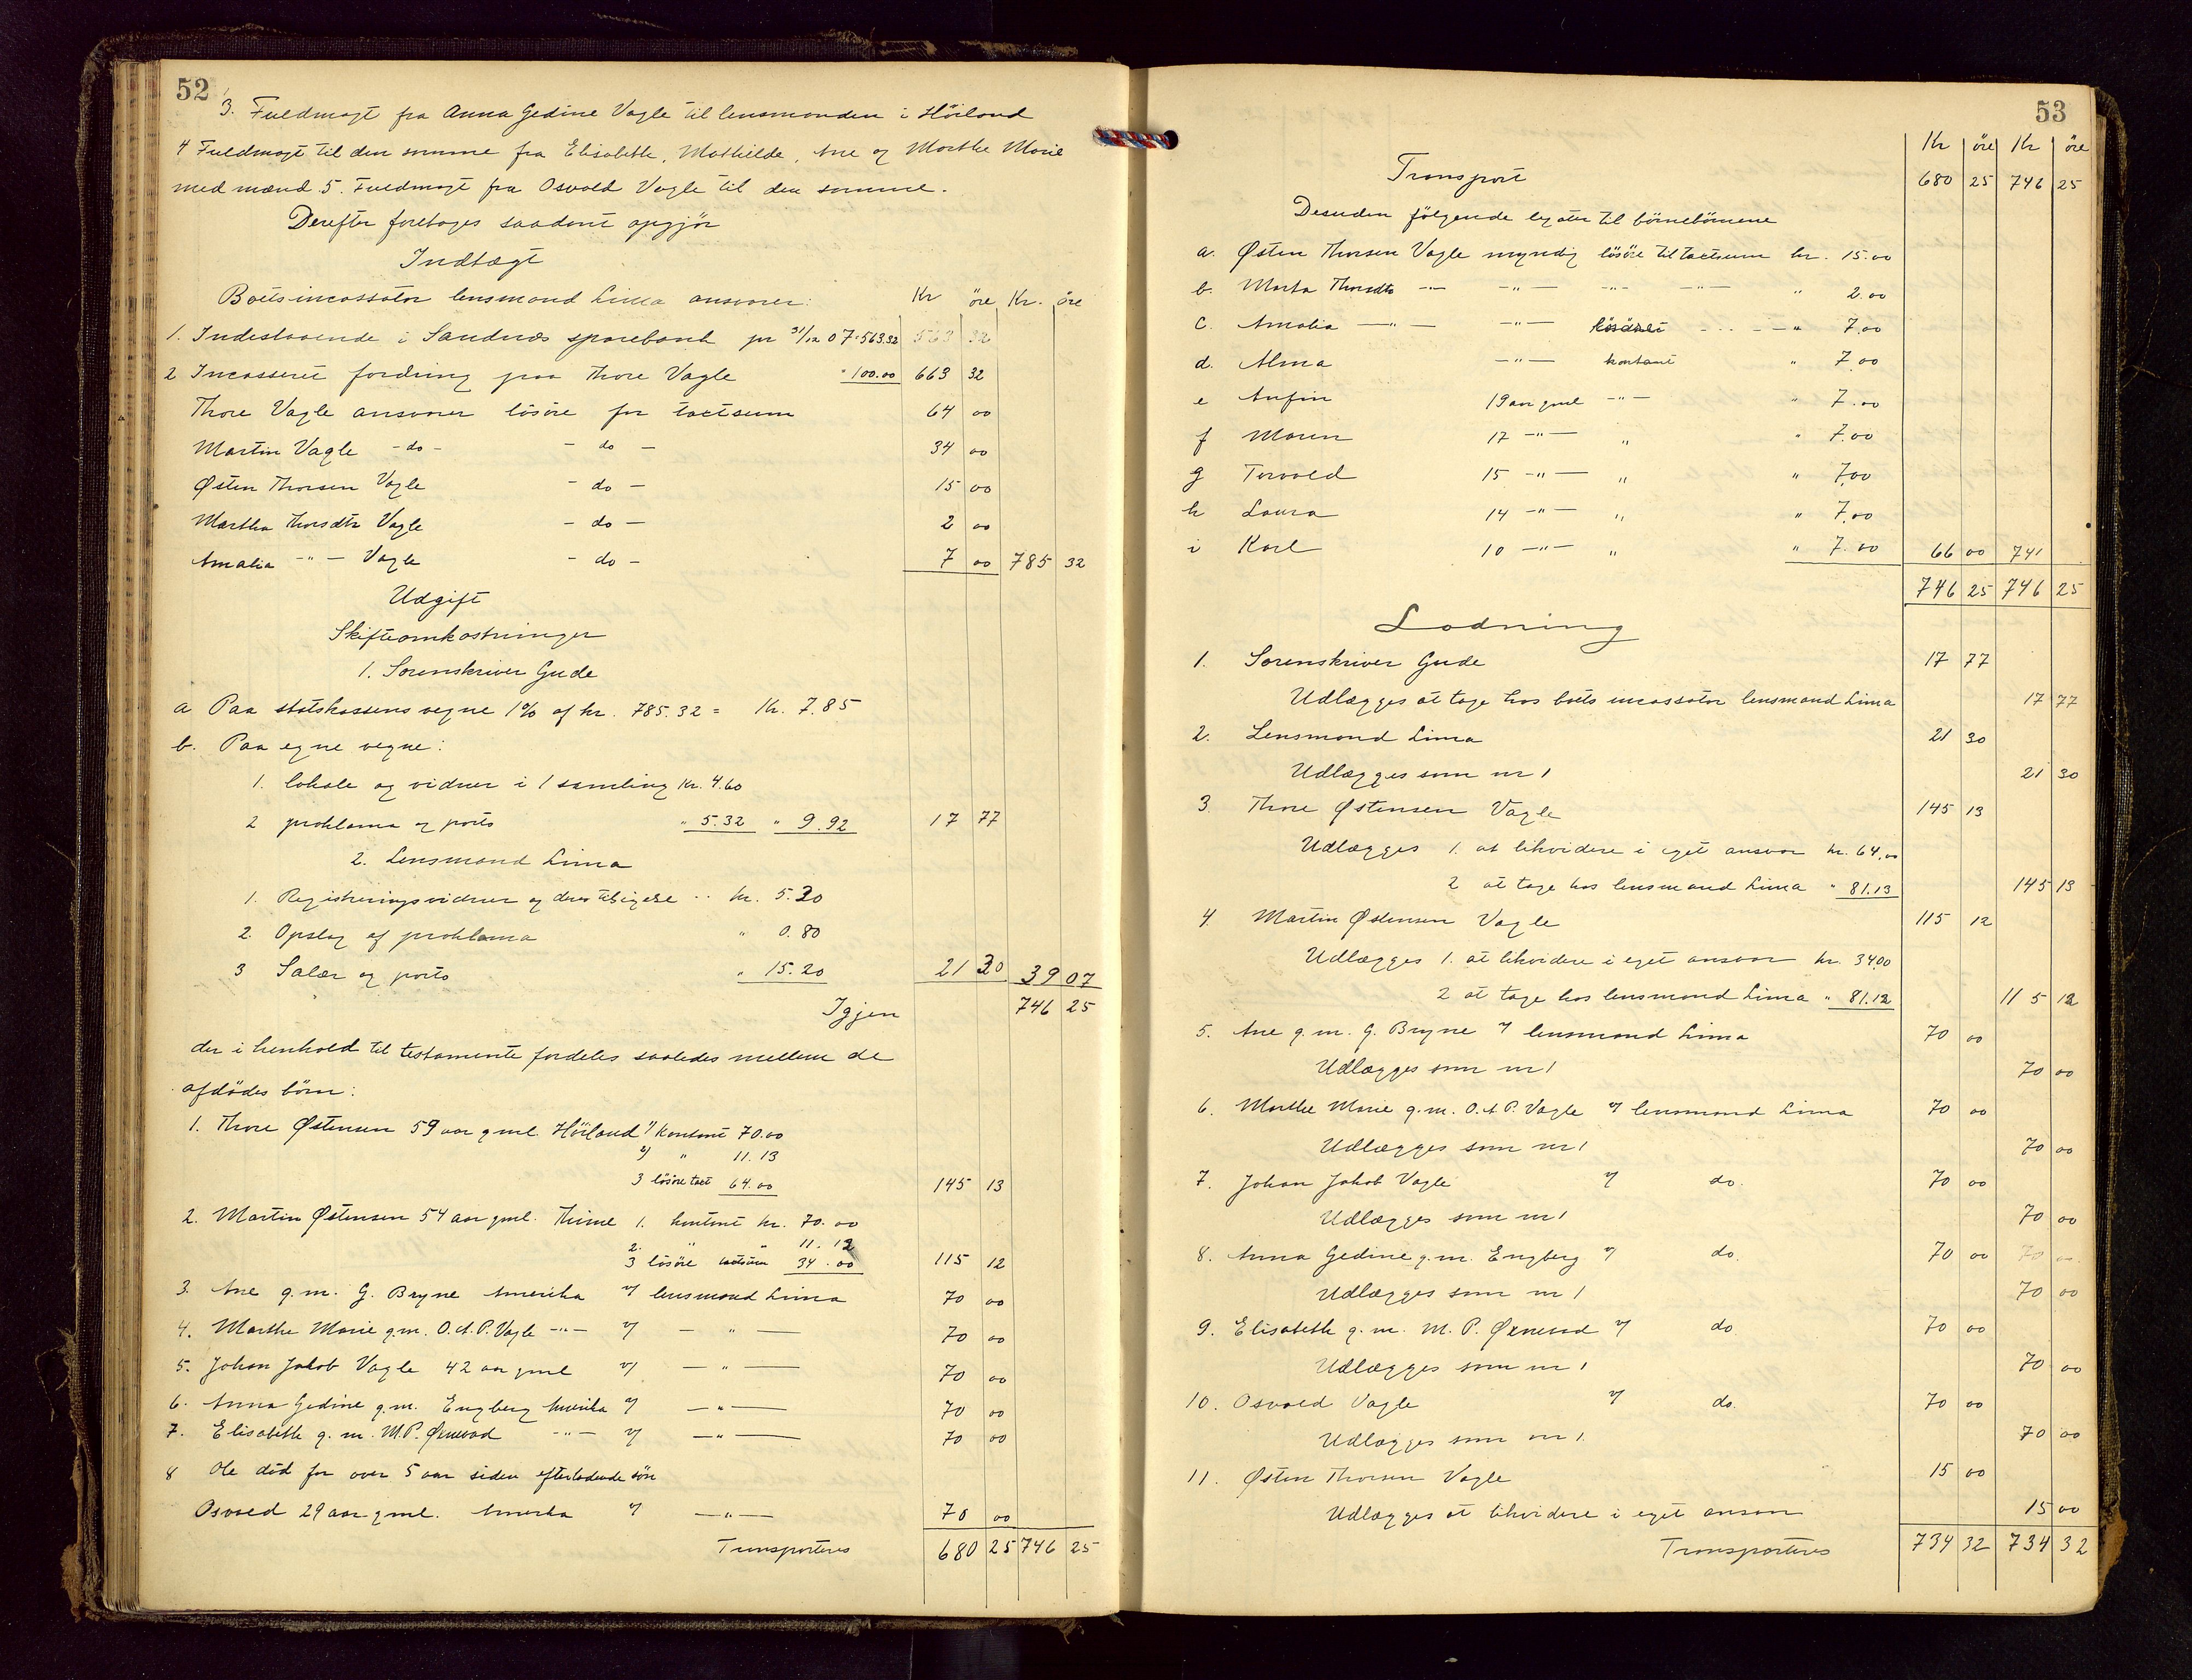 52
3. Fuldmagt fra Anna Gedine Vagle til lensmanden i Höiland
4 Fuldmagt til den samme fra Elisabeth, Mathilde, Ane og Marthe Marie
med mænd. 5. Fuldmagt fra Osvald Vagle til den samme.
Derefter foretages saadant opgjör
Indtægt
Boets incassator lensmand Lima ansvarer: Kr öre Kr. öre
1. Indestaaende i Sandnæs sparebank pr 31/12 07 563.32 563 32
2 Incasseret fordring paa Thore Vagle " 100.00 663 32
Thore Vagle ansvarer lösöre for taxtsum 64 00
Martin Vagle - do - - do - 34 00
Østen Thorsen Vagle - do - 15 00
Martha Thorsdtr Vagle - do - 2 00
Amalia - " - Vagle - do - 7 00 785 32
Udgift
Skifteomkostninger
1. Sorenskriver Gude
a Paa statskassens vegne 1% af kr. 785.32 = Kr. 7.85
b. Paa egne vegne:
1. lokale og vidner i 1 samling Kr. 4.60
2 proklama og porto " 5.32 " 9.92 17 77
2. Lensmand Lima
1. Registreringsvidner og deres tilsigelse .. kr. 5.30
2. Opslag af proklama " 0.80
3 Salær og porto " 15.20 21 30 39 07
Igjen 746 25
der i henhold til testamente fordeles saaledes mellem de
afdödes börn:
1. Thore Østensen 59 aar gml. Höiland 1/ Kontant 70.00
2/ " 11.13
3 lösöre taxt 64.00 145 13
2. Martin Østensen 54 aar gml. Thime 1. kontant kr. 70.00
2. " " 11.12
3 lösöre taxtsum 34.00 115 12
3. Ane g.m. G. Bryne Amerika v/ lensmand Lima 70 00
4. Marthe Marie g.m. O.A.P. Vagle - " - v/ — " — 70 00
5. Johan Jakob Vagle 42 aar gml v/ — " — 70 00
6. Anna Gedine g.m. Engberg Amerika v/ — " — 70 00
7. Elisabeth g.m. M.P. - " - v/ — " — 70 00
8 Ole död for over 5 aar siden efterladende sön
Osvald 29 aar gml. Amerika v/ — " — 70 00
Transporteres 680 25 746 25
53
Kr öre Kr öre
Transport 680 25 746 25
Desuden fölgende legater til börnebörnene
a. Østen Thorsen Vagle myndig lösöre til taxtsum kr. 15.00
b. Marta Thorsdtr - " - - " - - " - - " - " 2.00
c. Amalia - " - - " - lösöre - " 7.00
d. Alma - " - kontant " 7.00
e Anfin 19 aar gml - " - " 7.00
f Maren 17 - " - " " 7.00
g Torvald 15 - " - " " 7,00
h Laura 14 - " - " " 7.00
i Karl 10 - " - " " 7.00 66 00 741
746 25 746 25
Lodning
1. Sorenskriver Gude 17 77
Udlægges at tage hos boets incassator lensmand Lima 17 77
2. Lensmand Lima 21 30
Udlægges som nr 1 21 30
3. Thore Østensen Vagle 145 13
Udlægges 1. at likvidere i eget ansvar kr. 64.00
2 at tage hos lensmand Lima " 81.13 145 13
4. Martin Østensen Vagle 115 12
Udlægges 1. at likvidere i eget ansvar kr. 34.00
2 at tage hos lensmand Lima " 81.12 115 12
5. Ane g.m. G. Bryne v/ lensmand Lima 70 00
Udlægges som nr 1 70 00
6. Marthe Marie g.m. O.A.P. Vagle v/ lensmand Lima 70 00
Udlægges som nr 1 70 00
7. Johan Jakob Vagle v/ do. 70 00
Udlægges som nr 1 70 00
8. Anna Gedine g.m. Engberg v/ do. 70 00 70 00
Udlægges som nr 1 70 00
9. Elisabeth g.m. M.P. v/ do 70 00
Udlægges som nr 1 70 00
10. Osvald Vagle v/ do. 70 00
Udlægges som nr 1. 70 00
11. Østen Thorsen Vagle 15 00
Udlægges at likvidere i eget ansvar 15 00
Transporteres 734 32 734 32